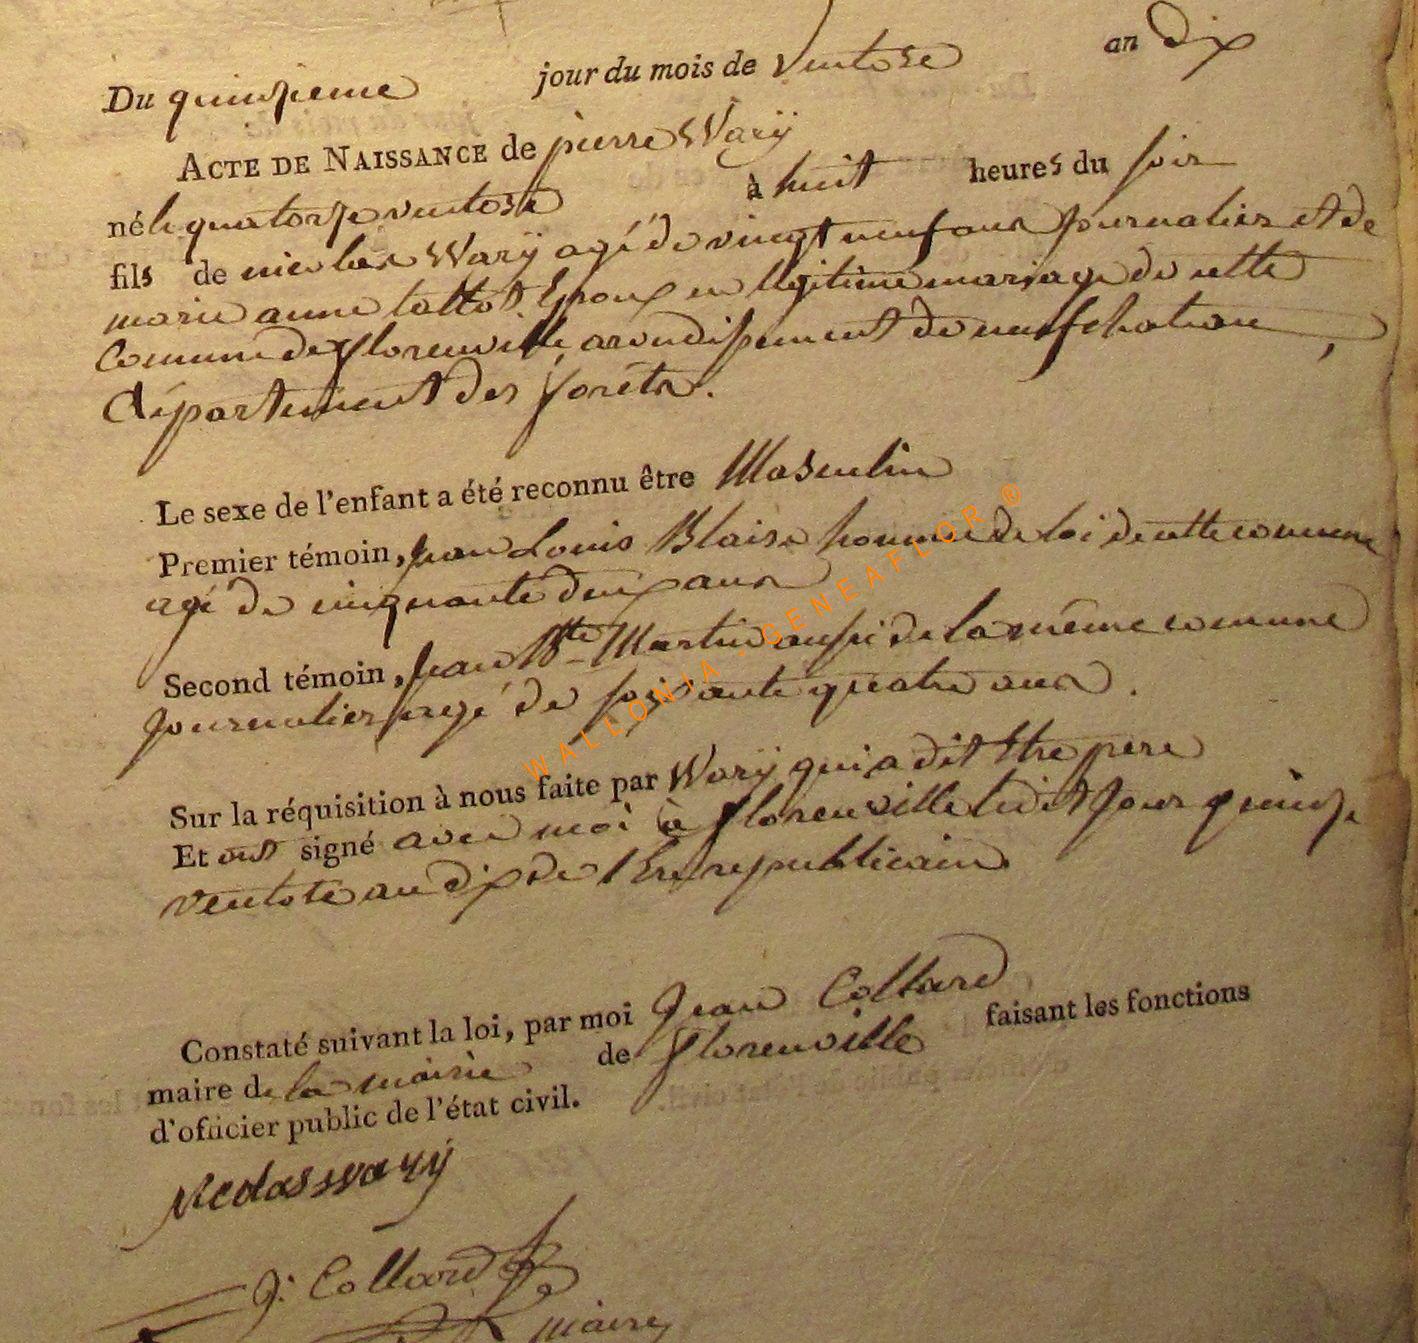 Du quinzieme jour du mois de Ventose an dix
ACTE DE NAISSANCE de pierre Warÿ
né le quatorze ventose à huit heures du soir
fils de nicolas Warÿ agé de vingt neuf ans journalier et de
marie anne tattot Epoux en légitime mariage de cette
Commune de florenville, arondissement de neufchateau,
Département des forêts.
Le sexe de l'enfant a été reconnu être Masculin
Premier témoin, jean Louis Blaise homme de loi de cette commune
agé de cinquante deux ans
Second témoin, jean Bte Martin aussi de la même commune
journalier agé de soixante quatre ans.
Sur la réquisition à nous faite par Warÿ qui a dit être pere
Et ont signé avec moi à florenville ledit jour quinze
ventose an dix de l'Ere republicain
Constaté suivant la loi, par moi Jean Collard
maire de la mairie de florenville faisant les fonctions
d'officier public de l'état civil.
Nicolas warÿ
J: Collard
maire
WALLONIA - GENEAFLOR ®